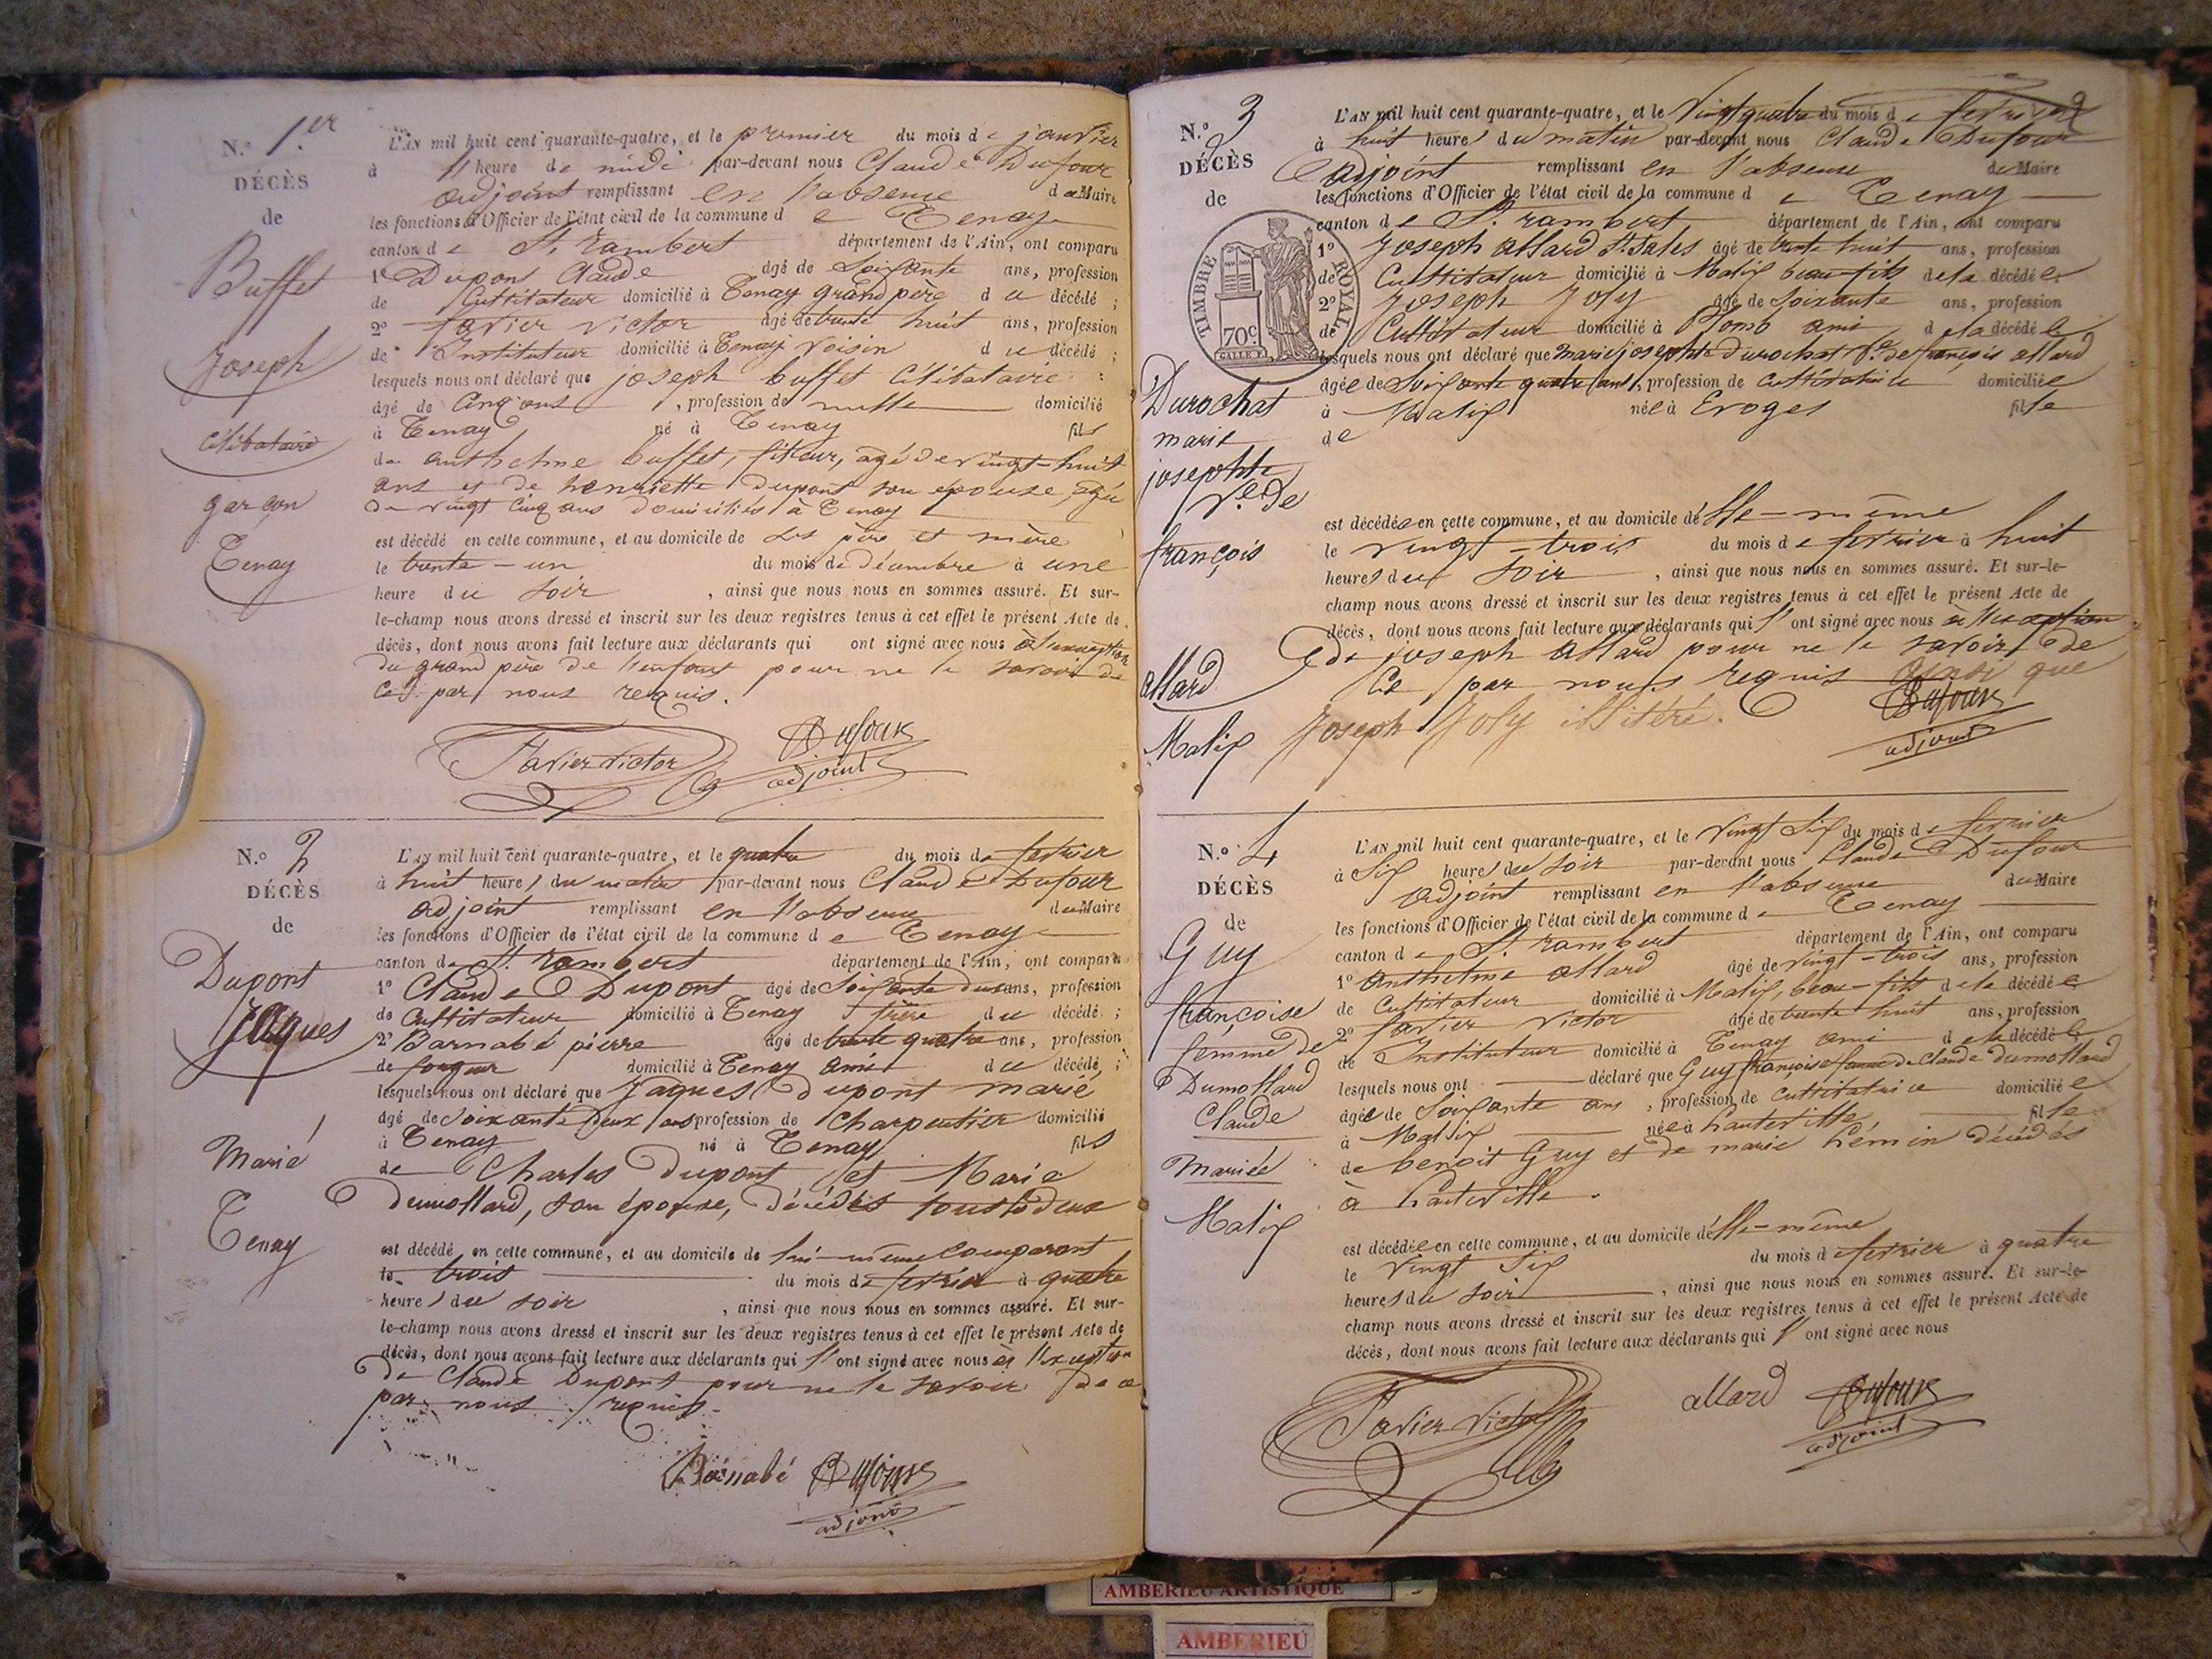 N.º 1.er
DÉCÈS
de
Buffet
Joseph
célibataire
garçon
Tenay
L'AN mil huit cent quarante-quatre, et le premier du mois de janvier
à heure de midi par-devant nous Claude Dufour
adjoint remplissant en l'absence du Maire
les fonctions d'Officier de l'état civil de la commune de Tenay
canton de St. rambert département de l'Ain, ont comparu
1º Dupont Claude âgé de Soixante ans, profession
de Cultivateur domicilié à Tenay grand père du décédé ;
2º favier victor âgé de trente huit ans, profession
de Instituteur domicilié à Tenay voisin du décédé ;
lesquels nous ont déclaré que joseph buffet célibataire
âgé de Cinq ans , profession de nulle domicilié
à Tenay né à Tenay fils
de anthelme buffet, fileur, agé de vingt-huit
ans et de henriette dupont son épouse, agée
de vingt cinq ans domiciliés à Tenay
est décédé en cette commune, et au domicile de ses père et mère
le trente-un du mois de décembre à une
heure du soir , ainsi que nous nous en sommes assuré. Et sur-
le-champ nous avons dressé et inscrit sur les deux registres tenus à cet effet le présent Acte de
décès, dont nous avons fait lecture aux déclarants qui ont signé avec nous à l'exception
du grand père de l'enfant pour ne le savoir de
ce par nous requis.
favier victor Dufour
adjoint
N.º 2
DÉCÈS
de
Dupont
Jaques
Marié
Tenay
L'AN mil huit cent quarante-quatre, et le quatre du mois de fevrier
à huit heures du matin par-devant nous Claude Dufour
adjoint remplissant en l'absence du Maire
les fonctions d'Officier de l'état civil de la commune de Tenay
canton de St. rambert département de l'Ain, ont comparu
1º Claude Dupont âgé de Soixante ans, profession
de Cultivateur domicilié à Tenay frère du décédé ;
2º Barnabé pierre âgé de trente quatre ans, profession
de domicilié à Tenay ami du décédé ;
lesquels nous ont déclaré que Jaques dupont marié
âgé de soixante deux ans profession de Charpentier domicilié
à Tenay né à Tenay fils
de Charles dupont et Marie
dumollard, son épouse, décédés tous deux
est décédé en cette commune, et au domicile de lui-même comparant
le trois du mois de fevrier à quatre
heures du soir , ainsi que nous nous en sommes assuré. Et sur-
le-champ nous avons dressé et inscrit sur les deux registres tenus à cet effet le présent Acte de
décès, dont nous avons fait lecture aux déclarants qui ont signé avec nous à l'exception
de Claude Dupont pour ne le savoir de ce
par nous requis.
Barnabé Dufour
adjoint
N.º 3
DÉCÈS
de
TIMBRE ROYAL
70c
Durochat
marie
josephte
Ve. de
françois
allard
Malix
L'AN mil huit cent quarante-quatre, et le Vingt quatre du mois de fevrier
à huit heures du matin par-devant nous Claude Dufour
adjoint remplissant en l'absence du Maire
les fonctions d'Officier de l'état civil de la commune de Tenay
canton de St. rambert département de l'Ain, ont comparu
1º Joseph allard âgé de trente huit ans, profession
de Cultivateur domicilié à Malix beau-fils de la décédée
2º Joseph Joly âgé de soixante ans, profession
de Cultivateur domicilié à ami de la décédée
lesquels nous ont déclaré que marie josephte durochat Ve. de françois allard
âgée de Soixante quatre ans, profession de cultivatrice domiciliée
à Malix née à Evoges fille
de
est décédée en cette commune, et au domicile d'elle-même
le vingt-trois du mois de fevrier à huit
heures du soir , ainsi que nous nous en sommes assuré. Et sur-le-
champ nous avons dressé et inscrit sur les deux registres tenus à cet effet le présent Acte de
décès, dont nous avons fait lecture aux déclarants qui ont signé avec nous à l'exception
de joseph allard pour ne le savoir de
ce par nous requis ainsi que
Joseph Joly illitéré.
Dufour
adjoint
N.º 4
DÉCÈS
de
Guy
françoise
femme de
Dumollard
Claude
Mariée
Malix
L'AN mil huit cent quarante-quatre, et le vingt six du mois de fevrier
à six heures du soir par-devant nous Claude Dufour
adjoint remplissant en l'absence du Maire
les fonctions d'Officier de l'état civil de la commune de Tenay
canton de St. rambert département de l'Ain, ont comparu
1º anthelme allard âgé de vingt-trois ans, profession
de Cultivateur domicilié à Malix, beau-fils de la décédée
2º favier victor âgé de trente huit ans, profession
de Instituteur domicilié à Tenay ami de la décédée
lesquels nous ont déclaré que Guy françoise femme de Claude dumollard
âgée de Soixante ans , profession de cultivatrice domiciliée
à Malix née à hauteville fille
de benoit Guy et de marie hémin décédés
à hauteville.
est décédée en cette commune, et au domicile d'elle-même
le vingt six du mois de fevrier à quatre
heures du soir , ainsi que nous nous en sommes assuré. Et sur-le-
champ nous avons dressé et inscrit sur les deux registres tenus à cet effet le présent Acte de
décès, dont nous avons fait lecture aux déclarants qui ont signé avec nous
favier victor allard Dufour
adjoint
AMBERIEU ARTISTIQUE
AMBERIEU